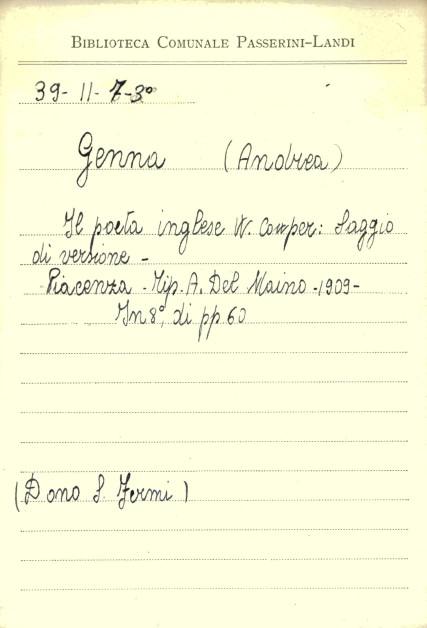 BIBLIOTECA COMUNALE PASSERINI-LANDI
39- 11- 7-3°
Genna (Andrea)
Il poeta inglese W. Cowper: Saggio
di versione -
Piacenza - Tip. A. Del Maino - 1909-
In 8°, di pp 60
(Dono S. Fermi)